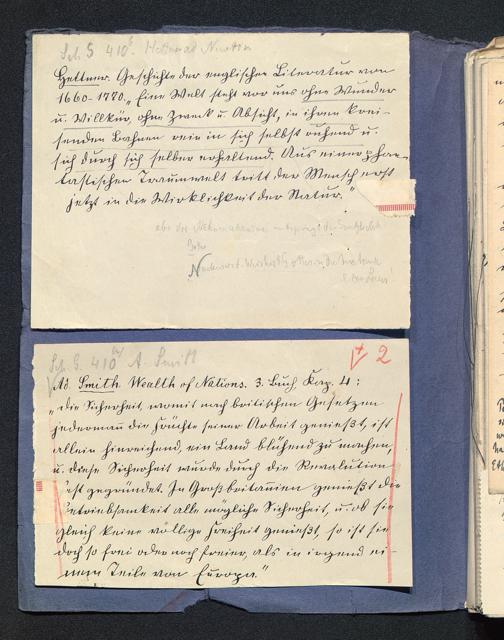 Sch. S. 410
Hettner. Geschichte der englischen Literatur von
1660-1770. „Eine Welt steht vor uns ohne Wunder
u. Willkür, ohne Zweck u. Absicht, in ihren krei-
senden Bahnen rein in sich selbst ruhend u.
sich durch sich selber erhaltend. Aus einer phan-
tastischen Traumwelt tritt der Mensch erst
jetzt in die Wirklichkeit der Natur."
Sch. S. 410 A. Smith
2
Ad. Smith. Wealth of Nations. 3. Buch Kap. 4:
„die Sicherheit, womit nach britischen Gesetzen
jedermann die Früchte seiner Arbeit genießt, ist
allein hinreichend, ein Land blühend zu machen,
u. diese Sicherheit wurde durch die Revolution
est gegründet. In Großbritannien genießt die
etriebsamkeit alle mögliche Sicherheit, u. ob sie
gleich keine völlige Freiheit genießt, so ist sie
doch so frei oder noch freier, als in irgend ei-
nem Teile von Europa."